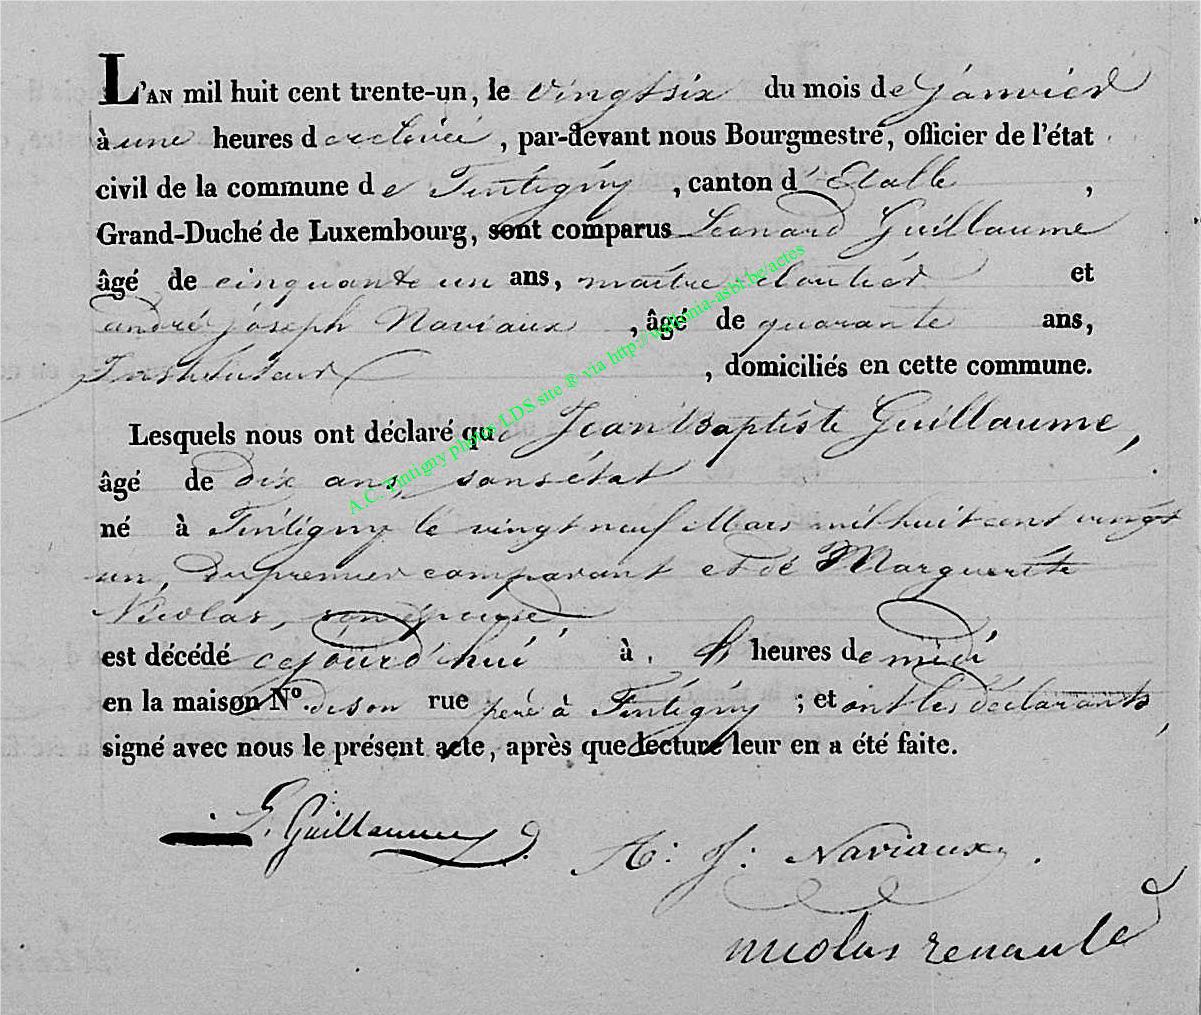 L'AN mil huit cent trente-un, le vingt six du mois de janvier
à une heures d relevée, par-devant nous Bourgmestre, officier de l'état
civil de la commune de Tintigny, canton d'Etalle,
Grand-Duché de Luxembourg, sont comparus Leonard Guillaume
âgé de cinquante un ans, maitre cloutier et
andré joseph Naviaux, âgé de quarante ans,
Instituteur, domiciliés en cette commune.
Lesquels nous ont déclaré que Jean Baptiste Guillaume,
âgé de dix ans, sans état
né à Tintigny le vingt neuf Mars mil huit cent vingt
un, du premier comparant et de Marguerite
Nicolas, son épouse,
est décédé cejourd'hui à heures de midi
en la maison N°. de son rue père à Tintigny; et ont les déclarants,
signé avec nous le présent acte, après que lecture leur en a été faite.
L. Guillaume
A: J: Naviaux.
nicolas renauld
A.C. Tintigny photos LDS site ® via http://wallonia-asbl.be/actes